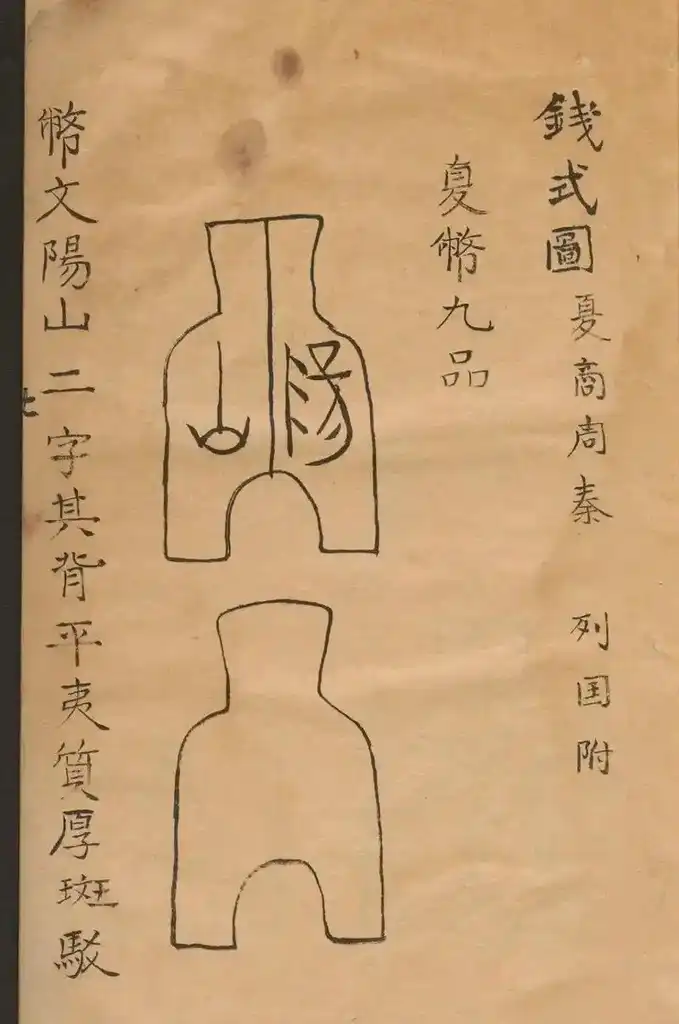 銭式圖 夏商周秦 列囯附
夏幣九品
陽
山
幣文陽山二字其背平夷質厚斑駁